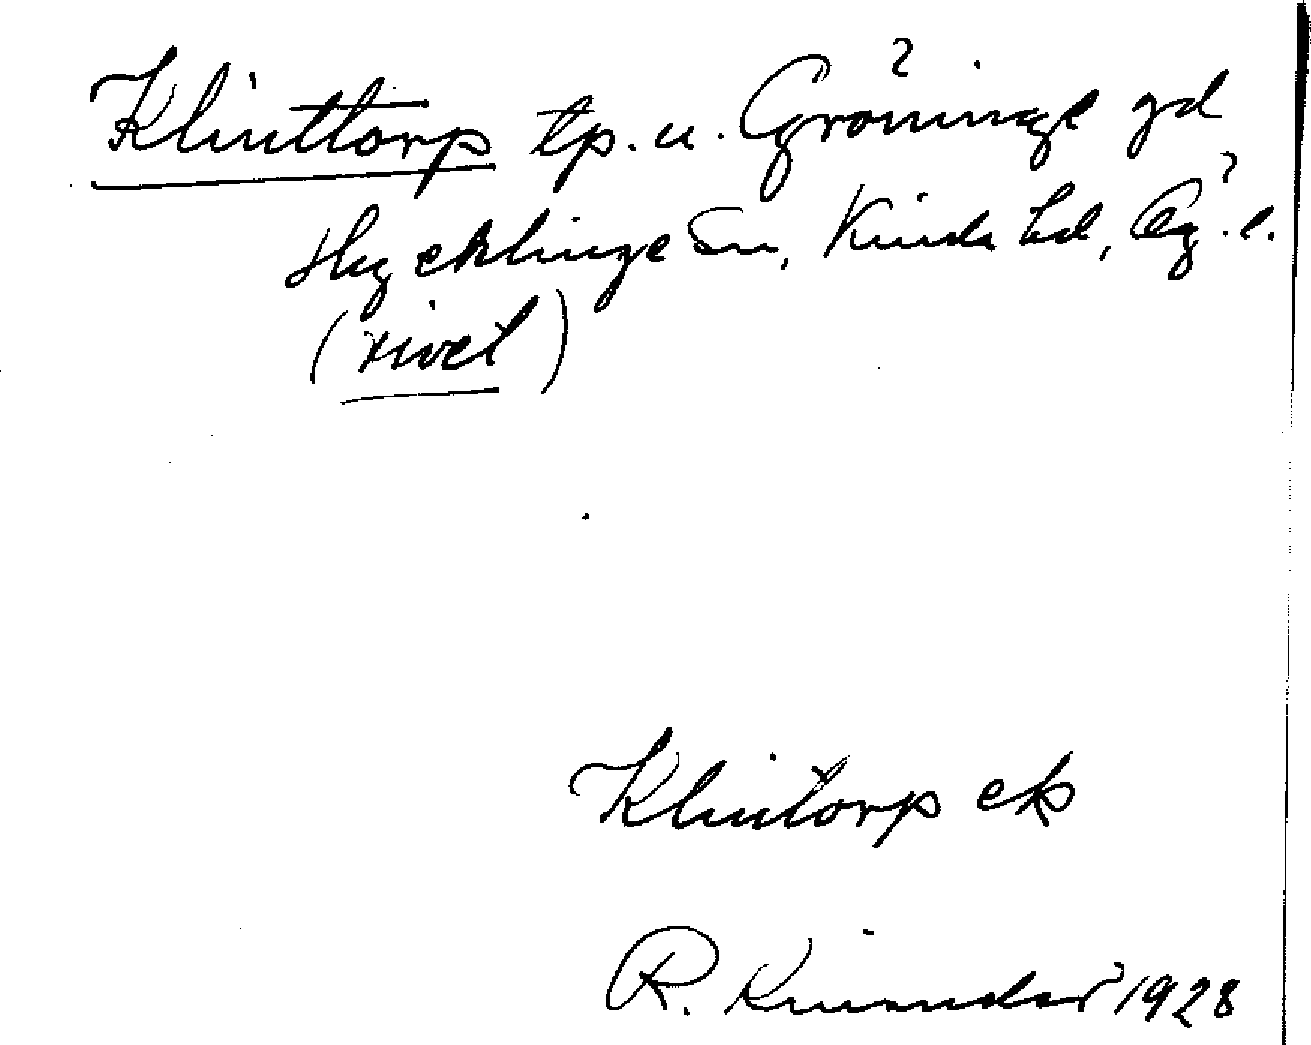 Klinttorp tp. u. Gröninge gd
Hycklinge sn, Kinda hd, Ög. l.
(rivet)
Klintorp ek
R. 1928